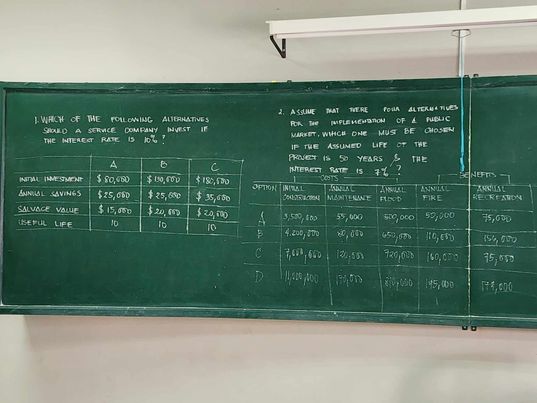 1. WHICH OF THE FOLLOWING ALTERNATIVES
SHOULD A SERVICE COMPANY INVEST IF
THE INTEREST RATE IS 10% ?
A B C
INITIAL INVESTMENT $ 80,000 $ 130,000 $ 180,000
ANNUAL SAVINGS $ 25,000 $ 25,000 $ 35,000
SALVAGE VALUE $ 15,000 $ 20,000 $ 20,000
USEFUL LIFE 10 10 10
2. ASSUME THAT THERE FOUR ALTERNATIVES
FOR THE IMPLEMENTATION OF A PUBLIC
MARKET, WHICH ONE MUST BE CHOSEN
IF THE ASSUMED LIFE OF THE
PROJECT IS 50 YEARS & THE
INTEREST RATE IS 7% ?
COSTS BENEFITS
OPTION INITIAL ANNUAL ANNUAL ANNUAL ANNUAL
CONSTRUCTION MAINTENANCE FLOOD FIRE RECREATION
A 3,500,000 35,000 500,000 50,000 75,000
B 4,200,000 80,000 650,000 110,000
C 7,000,000 120,000 720,000 160,000 75,000
D 170,000 810,000 195,000